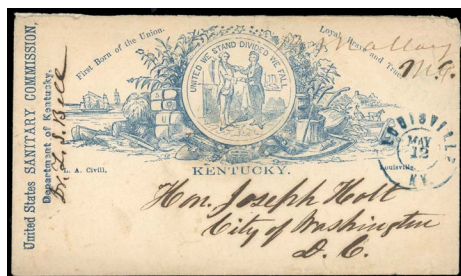 United States SANITARY COMMISSION,
Department of Kentucky.
First Born of the Union.
Loyal, Brave and True.
UNITED WE STAND DIVIDED WE FALL
A. Civill,
KENTUCKY.
Louisville.
LOUISVILLE
MAY
12
KY
Hon. Joseph Holt
City of Washington
D. C.